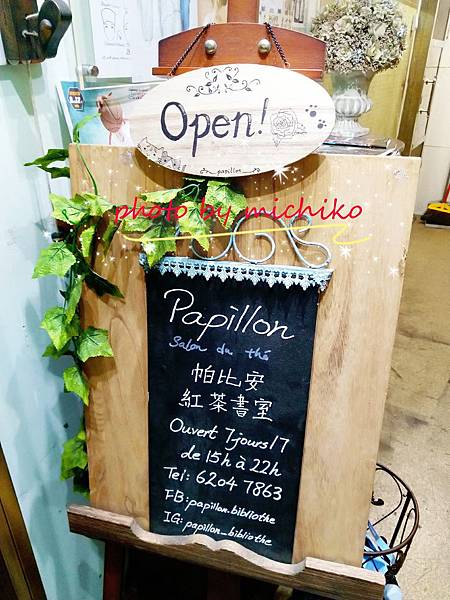 Open!
papillon
photo by michiko
Papillon
Salon du thé
帕比安
紅茶書室
Ouvert 7jours/7
de 15h à 22h
Tel: 6204 7863
FB:papillon.bibliothe
IG: papillon_bibliothe